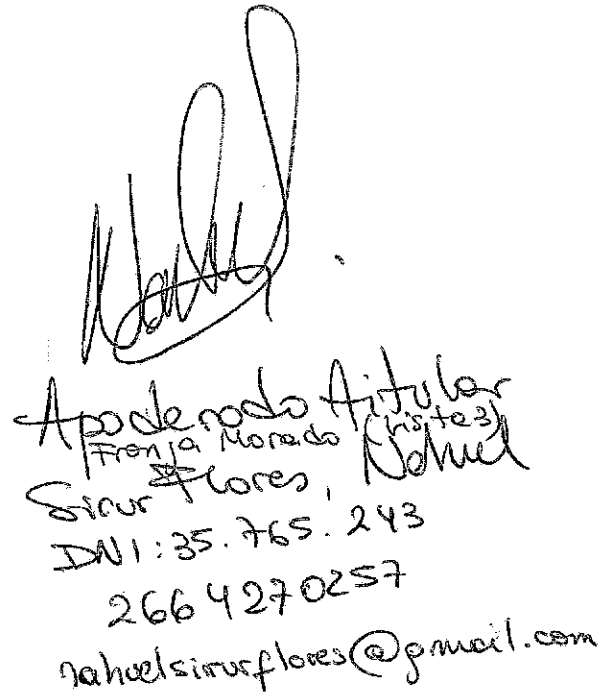 Nahuel
Apoderado Titular
Franja Morada (Lista 3)
Sirur Flores, Nahuel
DNI: 35.765.243
2664270257
nahuelsirurflores@gmail.com